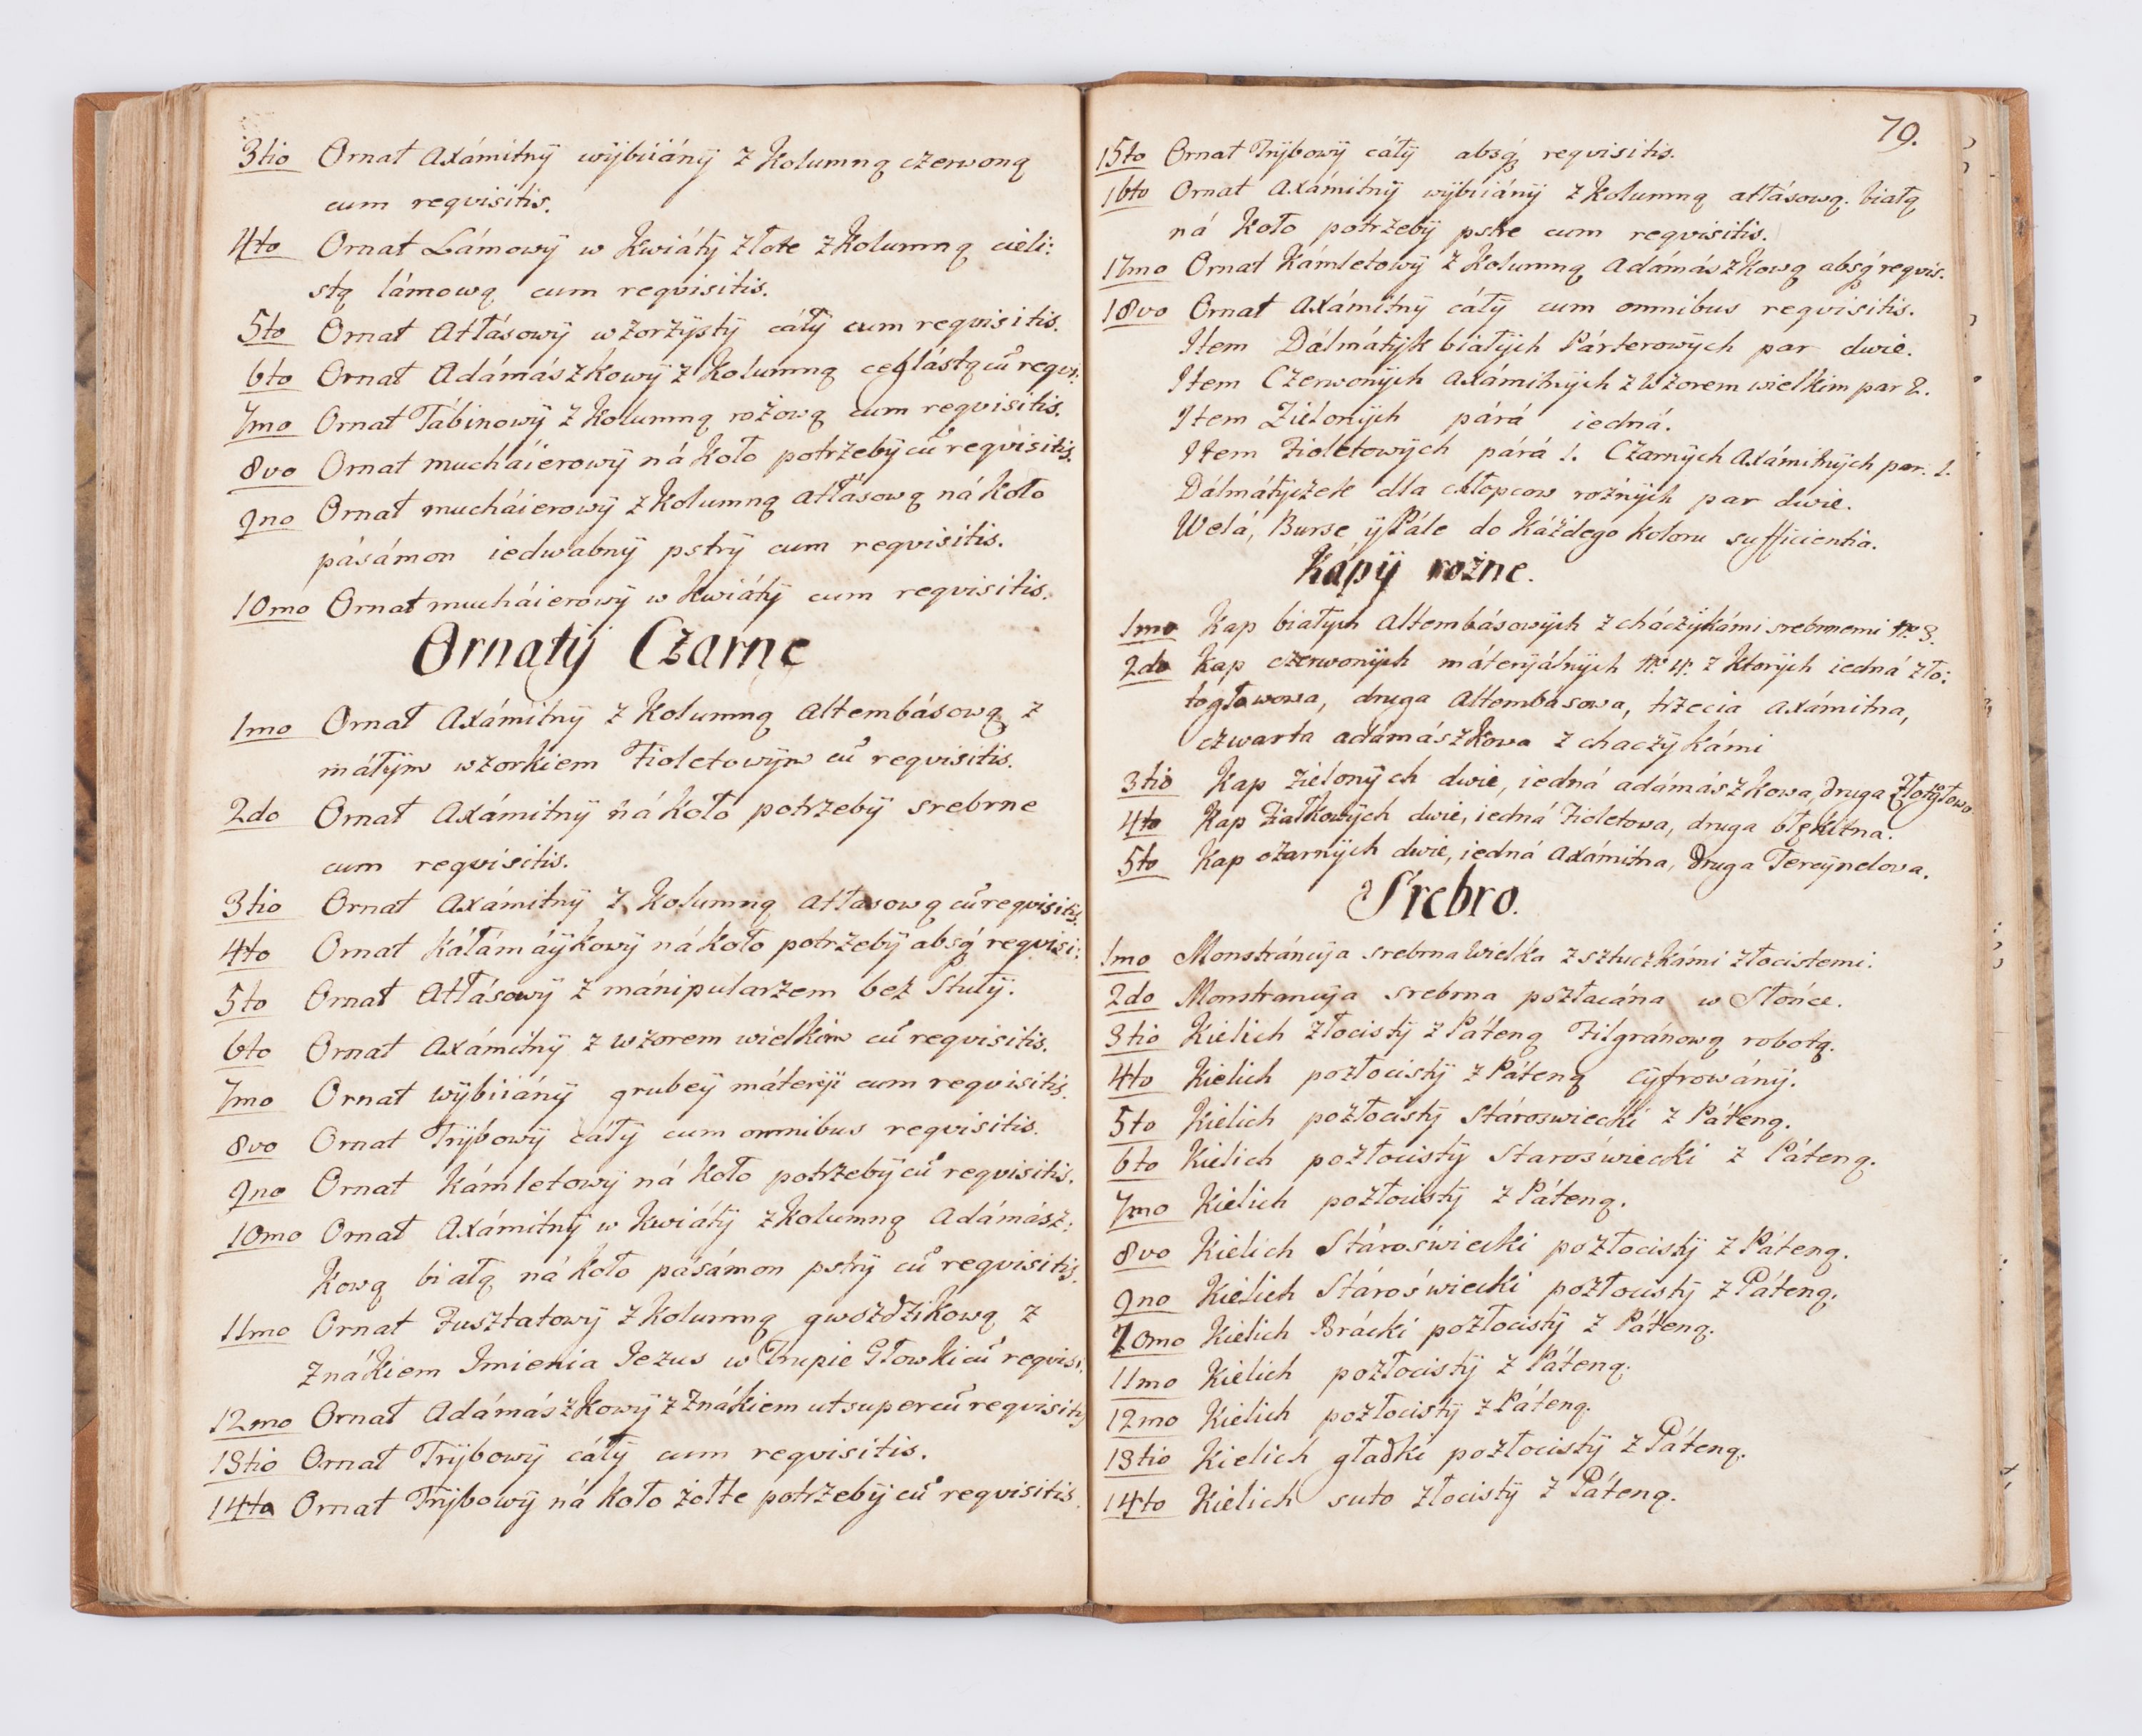 3tio Ornat Axámitnÿ wÿbiiánÿ z kolumną czerwoną
cum reqvisitis.
4to Ornat Lámowÿ w kwiátÿ złote z kolumną cieli:
stą lámową cum reqvisitis.
5to Ornat Atłásowÿ wzorzÿstÿ cáłÿ cum reqvisitis.
6to Ornat Adámászkowÿ z kolumną ceglástą cũ reqvi:
7mo Ornat Tábinowÿ z kolumną rożową cum reqvisitis.
8vo Ornat mucháierowÿ ná koło potrzebÿ cũ reqvisitis.
9no Ornat mucháierowÿ z kolumną atłásową ná koło
pásámon iedwabnÿ pstrÿ cum reqvisitis.
10mo Ornat mucháierowÿ w kwiátÿ cum reqvisitis.
Ornatÿ Czarne
1mo Ornat Axámitnÿ z kolumną altembásową z
máłÿm wzorkiem Fioletowÿm cũ reqvisitis.
2do Ornat Axámitnÿ ná koło potrzebÿ srebrne
cum reqvisitis.
3tio Ornat Axámitnÿ z kolumną atłasową cũ reqvisitis.
4to Ornat kátámáÿkowÿ ná koło potrzebÿ absq́ reqvisi:
5to Ornat Atłásowÿ z mánipularzem bez Stułÿ.
6to Ornat Axámitnÿ z wzorem wielkim cũ reqvisitis.
7mo Ornat wÿbiiánÿ grubeÿ máterÿi cum reqvisitis.
8vo Ornat Trÿbowÿ cáłÿ cum omnibus reqvisitis.
9no Ornat kámletowÿ ná koło potrzebÿ cũ reqvisitis.
10mo Ornat Axámitnÿ w kwiátÿ z kolumną Adámász:
kową białą ná koło pásámon pstrÿ cũ reqvisitis.
11mo Ornat Fusztatowÿ z kolumną gwozdzikową z
Znákiem Imienia Jezus w Trupie Głowki cũ reqvisi.
12mo Ornat Adámászkowÿ z Znákiem ut super cũ reqvisitis
13tio Ornat Trÿbowÿ cáłÿ cum reqvisitis.
14to Ornat Trÿbowÿ ná koło żołte potrzebÿ cũ reqvisitis.
79.
15to Ornat Trÿbowÿ cáłÿ absq́ reqvisitis.
16to Ornat Axámitnÿ wÿbiiánÿ z kolumną atłásową białą
ná koło potrzebÿ pstre cum reqvisitis.
17mo Ornat Kámletowÿ z kolumną Adámászkową absq́ reqvis.
18vo Ornat Axámitnÿ cáłÿ cum omnibus reqvisitis.
Item Dálmátÿk białÿch Párterowÿch par dwie.
Item Czerwonÿch axámitnÿch z wzorem wielkim par 2.
Item Zielonÿch párá iedná.
Item Fioletowÿch párá 1. Czarnÿch Axámitnÿch par. 1.
Dálmátÿczek dla chłopcow rożnÿch par dwie.
Welá, Burse, ÿ Pále do káżdego koloru sufficientia.
Kápÿ rożne.
1mo Kap białÿch Altembásowÿch z cháczÿkámi srebrnemi No 8.
2do Kap czerwonÿch máterÿálnÿch No 4. z ktorÿch iedná zło:
togłowowa, druga Altembasowa, trzecia axámitna,
czwarta adámászkowa z chaczÿkámi
3tio Kap zielonÿch dwie, iedná adámászkowa, druga Złotogłowo
4to Kap Fiałkowÿch dwie, iedná Fioletowa, druga błękitna.
5to Kap czarnÿch dwie, iedná Axámitna, druga Tercÿnelowa.
Srebro.
1mo Monstráncÿja srebrna wielka z sztuczkámi złocistemi.
2do Monstrancÿja srebrna pozłacána w Słońce.
3tio Kielich złocistÿ z Páteną Filgránową robotą.
4to Kielich pozłocistÿ z Páteną cÿfrowánÿ.
5to Kielich pozłocistÿ Stároswiecki z Páteną.
6to Kielich pozłocistÿ Staroświecki z Páteną.
7mo Kielich pozłocistÿ z Páteną.
8vo Kielich Stároświecki pozłocistÿ z Páteną.
9no Kielich Stároświecki pozłocistÿ z Páteną.
10mo Kielich Brácki pozłocistÿ z Páteną.
11mo Kielich pozłocistÿ z Páteną.
12mo Kielich pozłocistÿ z Páteną.
13tio Kielich gładki pozłocistÿ z Páteną.
14to Kielich suto złocistÿ z Páteną.